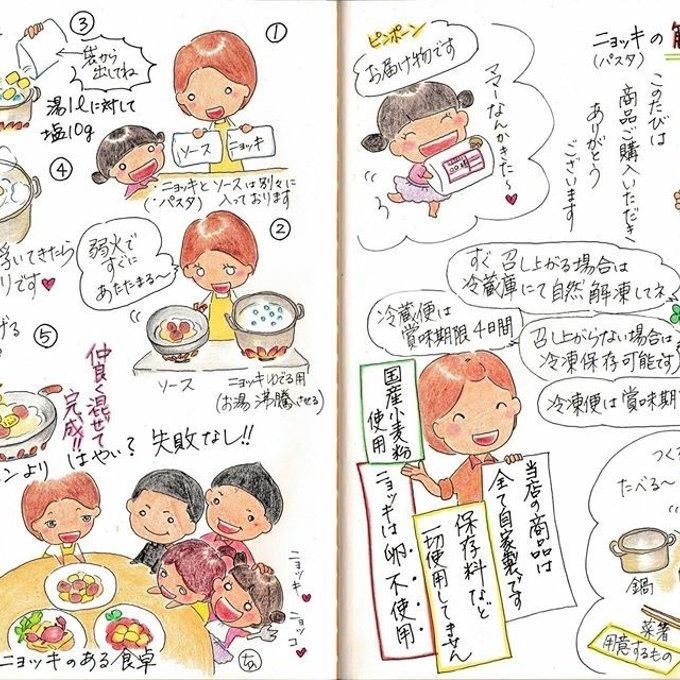 ニョッキの
(パスタ)
このたびは
商品ご購入いただき
ありがとう
ございます
ピンポーン
お届け物です
ママーなんかきた〜♥
すぐ召し上がる場合は
冷蔵庫にて自然解凍してネ
冷蔵便は
賞味期限4日間
召し上がらない場合は
冷凍保存可能です
冷凍便は賞味期
国産小麦粉
使用
ニョッキは卵不使用
保存料など
一切使用してません
当店の商品は
全て自家製です
つく
たべる〜
鍋
菜箸
用意するもの
①
ソース
ニョッキ
ニョッキとソースは別々に
(パスタ)
入っております
②
弱火で
すぐに
あたたまる〜
ソース
ニョッキゆでる用
(お湯沸騰させる)
③
袋から
出してね
湯1ℓに対して
塩10g
④
浮いてきたら
リです♥
⑤
げる
仲良く混ぜて
完成!!
ンより
はやい?失敗なし!!
ニョッキ♥
ニョッコ♥
ニョッキのある食卓